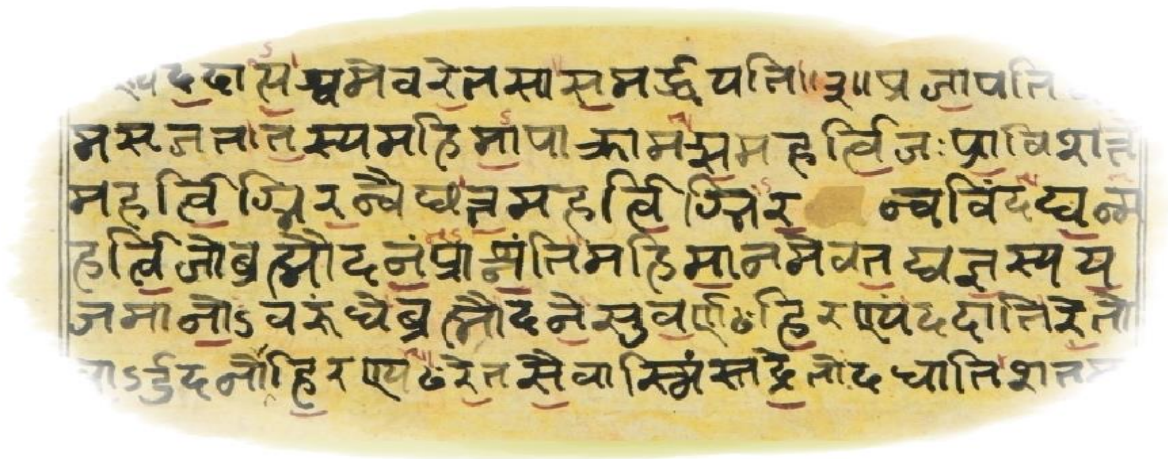 ददात्यश्वमेवरेतसासमर्द्धयति॥३॥प्रजापति
मसृजततस्यमहिमापाक्रामत्समहर्त्विजःप्राविशत्त
महर्त्विग्भिरन्वैछत्तमहर्त्विग्भिर न्वविंदद्यन्म
हर्त्विजोब्रह्मौदनंप्राश्नंतिमहिमानमेवतद्यज्ञस्यय
जमानोऽवरुंधेब्रह्मौदनेसुवर्णᳬहिरण्यंददातिरेतो
हिरण्यᳬरेतसैवास्मिंस्तद्रेतोदधातिशत